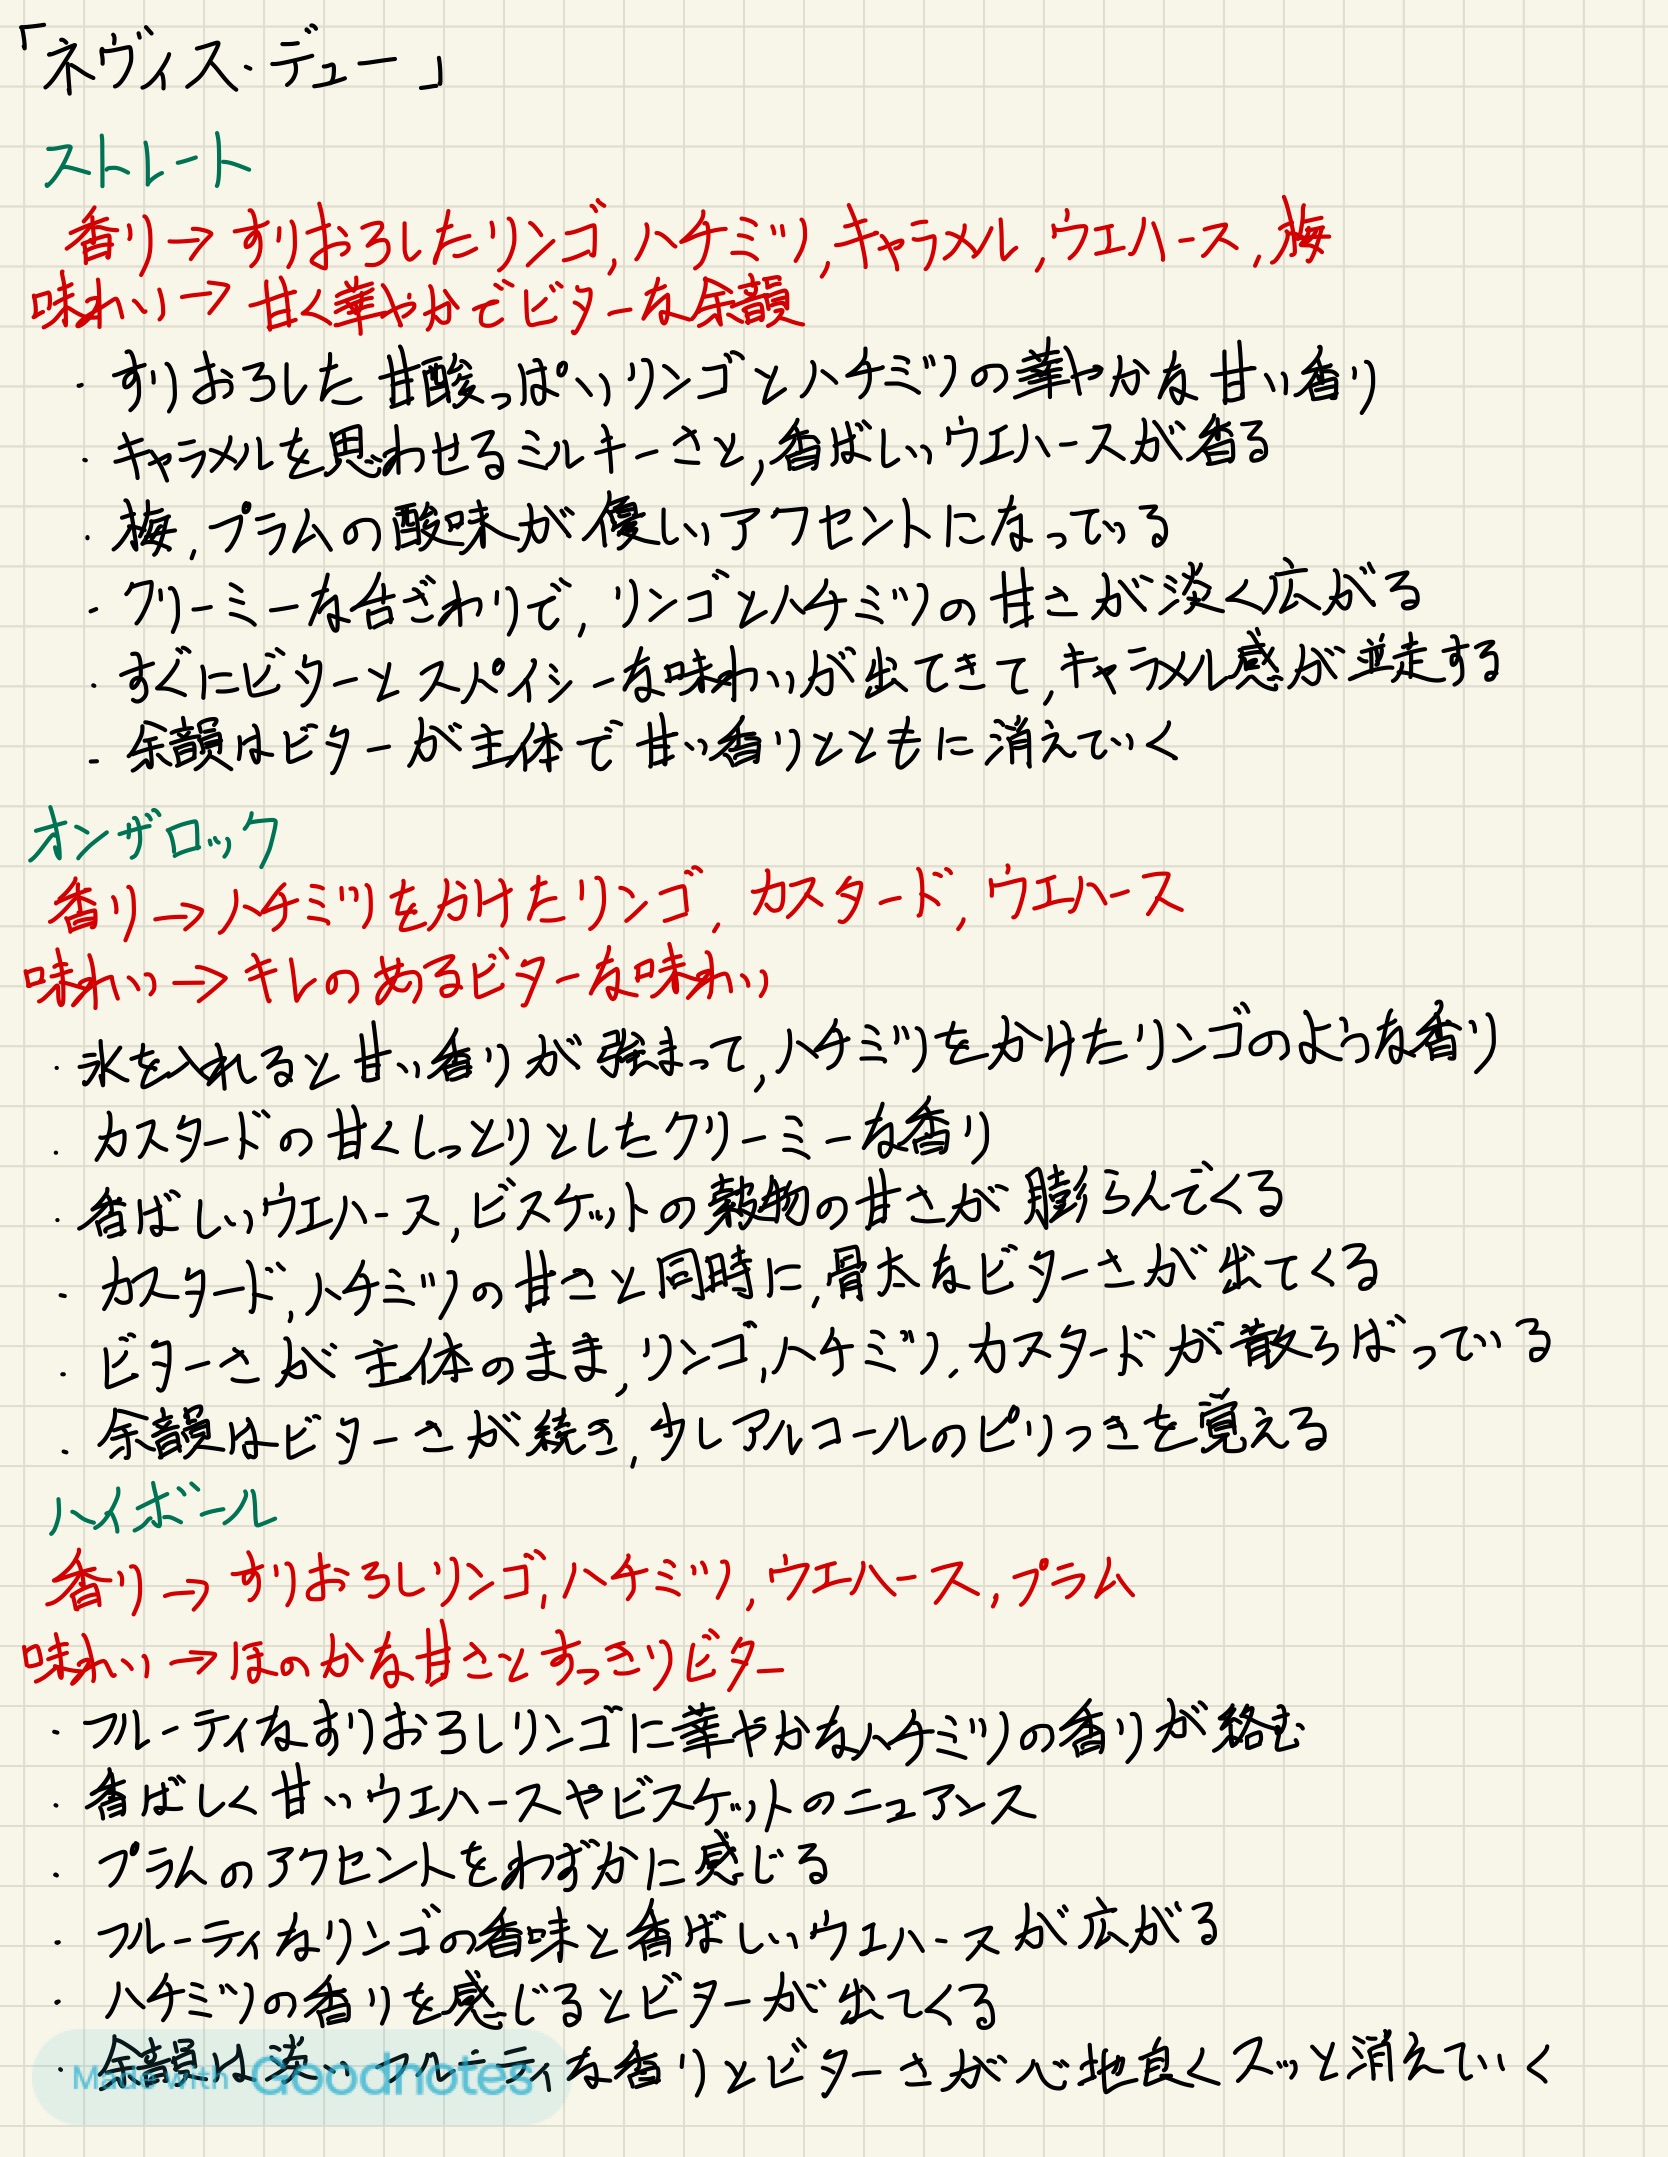 「ネヴィス・デュー」
ストレート
香り→すりおろしたリンゴ,ハチミツ,キャラメル,ウエハース,梅
味わい→甘く華やかでビターな余韻
・すりおろした甘酸っぱいリンゴとハチミツの華やかな甘い香り
・キャラメルを思わせるミルキーさと,香ばしいウエハースが香る
・梅,プラムの酸味が優しいアクセントになっている
・クリーミーな舌ざわりで,リンゴとハチミツの甘さが淡く広がる
・すぐにビターとスパイシーな味わいが出てきて,キャラメル感が並走する
・余韻はビターが主体で甘い香りとともに消えていく
オンザロック
香り→ハチミツをかけたリンゴ,カスタード,ウエハース
味わい→キレのあるビターな味わい
・氷を入れると甘い香りが強まって,ハチミツをかけたリンゴのような香り
・カスタードの甘くしっとりとしたクリーミーな香り
・香ばしいウエハース,ビスケットの穀物の甘さが膨らんでくる
・カスタード,ハチミツの甘さと同時に,骨太なビターさが出てくる
・ビターさが主体のまま,リンゴ,ハチミツ,カスタードが散らばっている
・余韻はビターさが続き,少しアルコールのピリつきを覚える
ハイボール
香り→すりおろしリンゴ,ハチミツ,ウエハース,プラム
味わい→ほのかな甘さとすっきりビター
・フルーティなすりおろしリンゴに華やかなハチミツの香りが絡む
・香ばしく甘いウエハースやビスケットのニュアンス
・プラムのアクセントをわずかに感じる
・フルーティなリンゴの香味と香ばしいウエハースが広がる
・ハチミツの香りを感じるとビターが出てくる
・余韻は淡いフルーティな香りとビターさが心地良くスッと消えていく
Made with Goodnotes